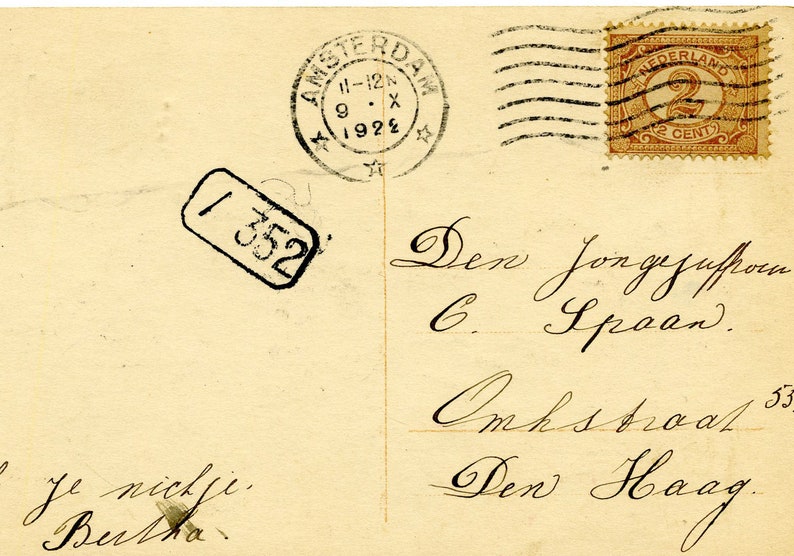 AMSTERDAM
11-12N
9 . X
1922
NEDERLAND
2
2 CENT
/ 352
Den Jongejuffrouw
C. Spaan.
53
Den Haag.
je nichtje.
Bertha.